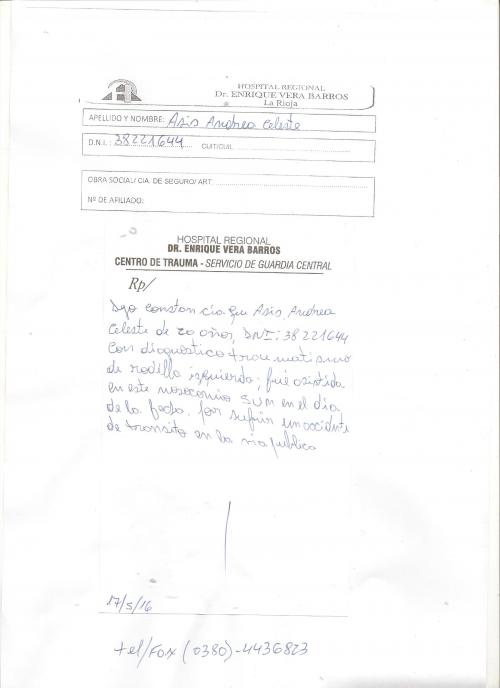 HOSPITAL REGIONAL
Dr. ENRIQUE VERA BARROS
La Rioja
APELLIDO Y NOMBRE: Asis Andrea Celeste
D.N.I.: 38221644 CUIT/CUIL:
OBRA SOCIAL/ CIA. DE SEGURO/ ART:
Nº DE AFILIADO:
HOSPITAL REGIONAL
DR. ENRIQUE VERA BARROS
CENTRO DE TRAUMA - SERVICIO DE GUARDIA CENTRAL
Rp/
Dejo constancia que Asis, Andrea
Celeste de 20 años, DNI: 38221644
Con diagnostico traumatismo
de rodilla izquierda; fué asistida
en este nosocomio en el día
de la fecha, por sufrir un accidente
de transito en la via publica
17/5/16
tel/Fax (0380)-4436823